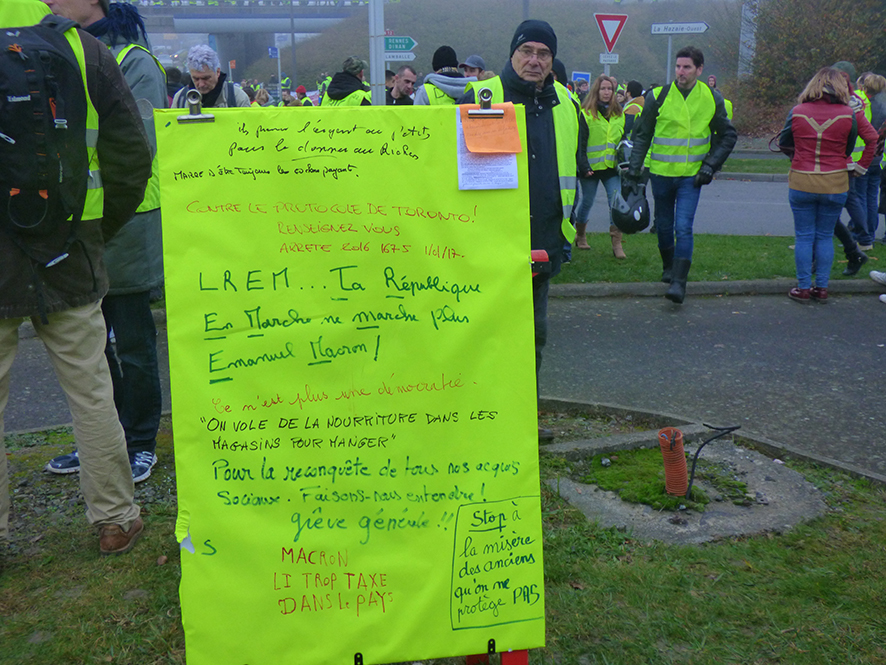 RENNES
DINAN
LAMBALLE
La Mezaie
ils prennent l'argent aux petits
pour le donner aux Riches
MARRE D'ÊTRE Toujours les cochons payant.
CONTRE LE PROTOCOLE DE TORONTO!
RENSEIGNEZ VOUS
ARRETE 2016 1675 1/01/17.
LREM... La République
En Marche ne marche plus
Emanuel Macron!
Ce n'est plus une démocratie.
"ON VOLE DE LA NOURRITURE DANS LES
MAGASINS POUR MANGER"
Pour la reconquête de tous nos acquis
Sociaux. Faisons-nous entendre!
grêve générale!!
S
MACRON
LI TROP TAXE
DANS LE PAYS
Stop à
la misère
des anciens
qu'on ne
protège PAS